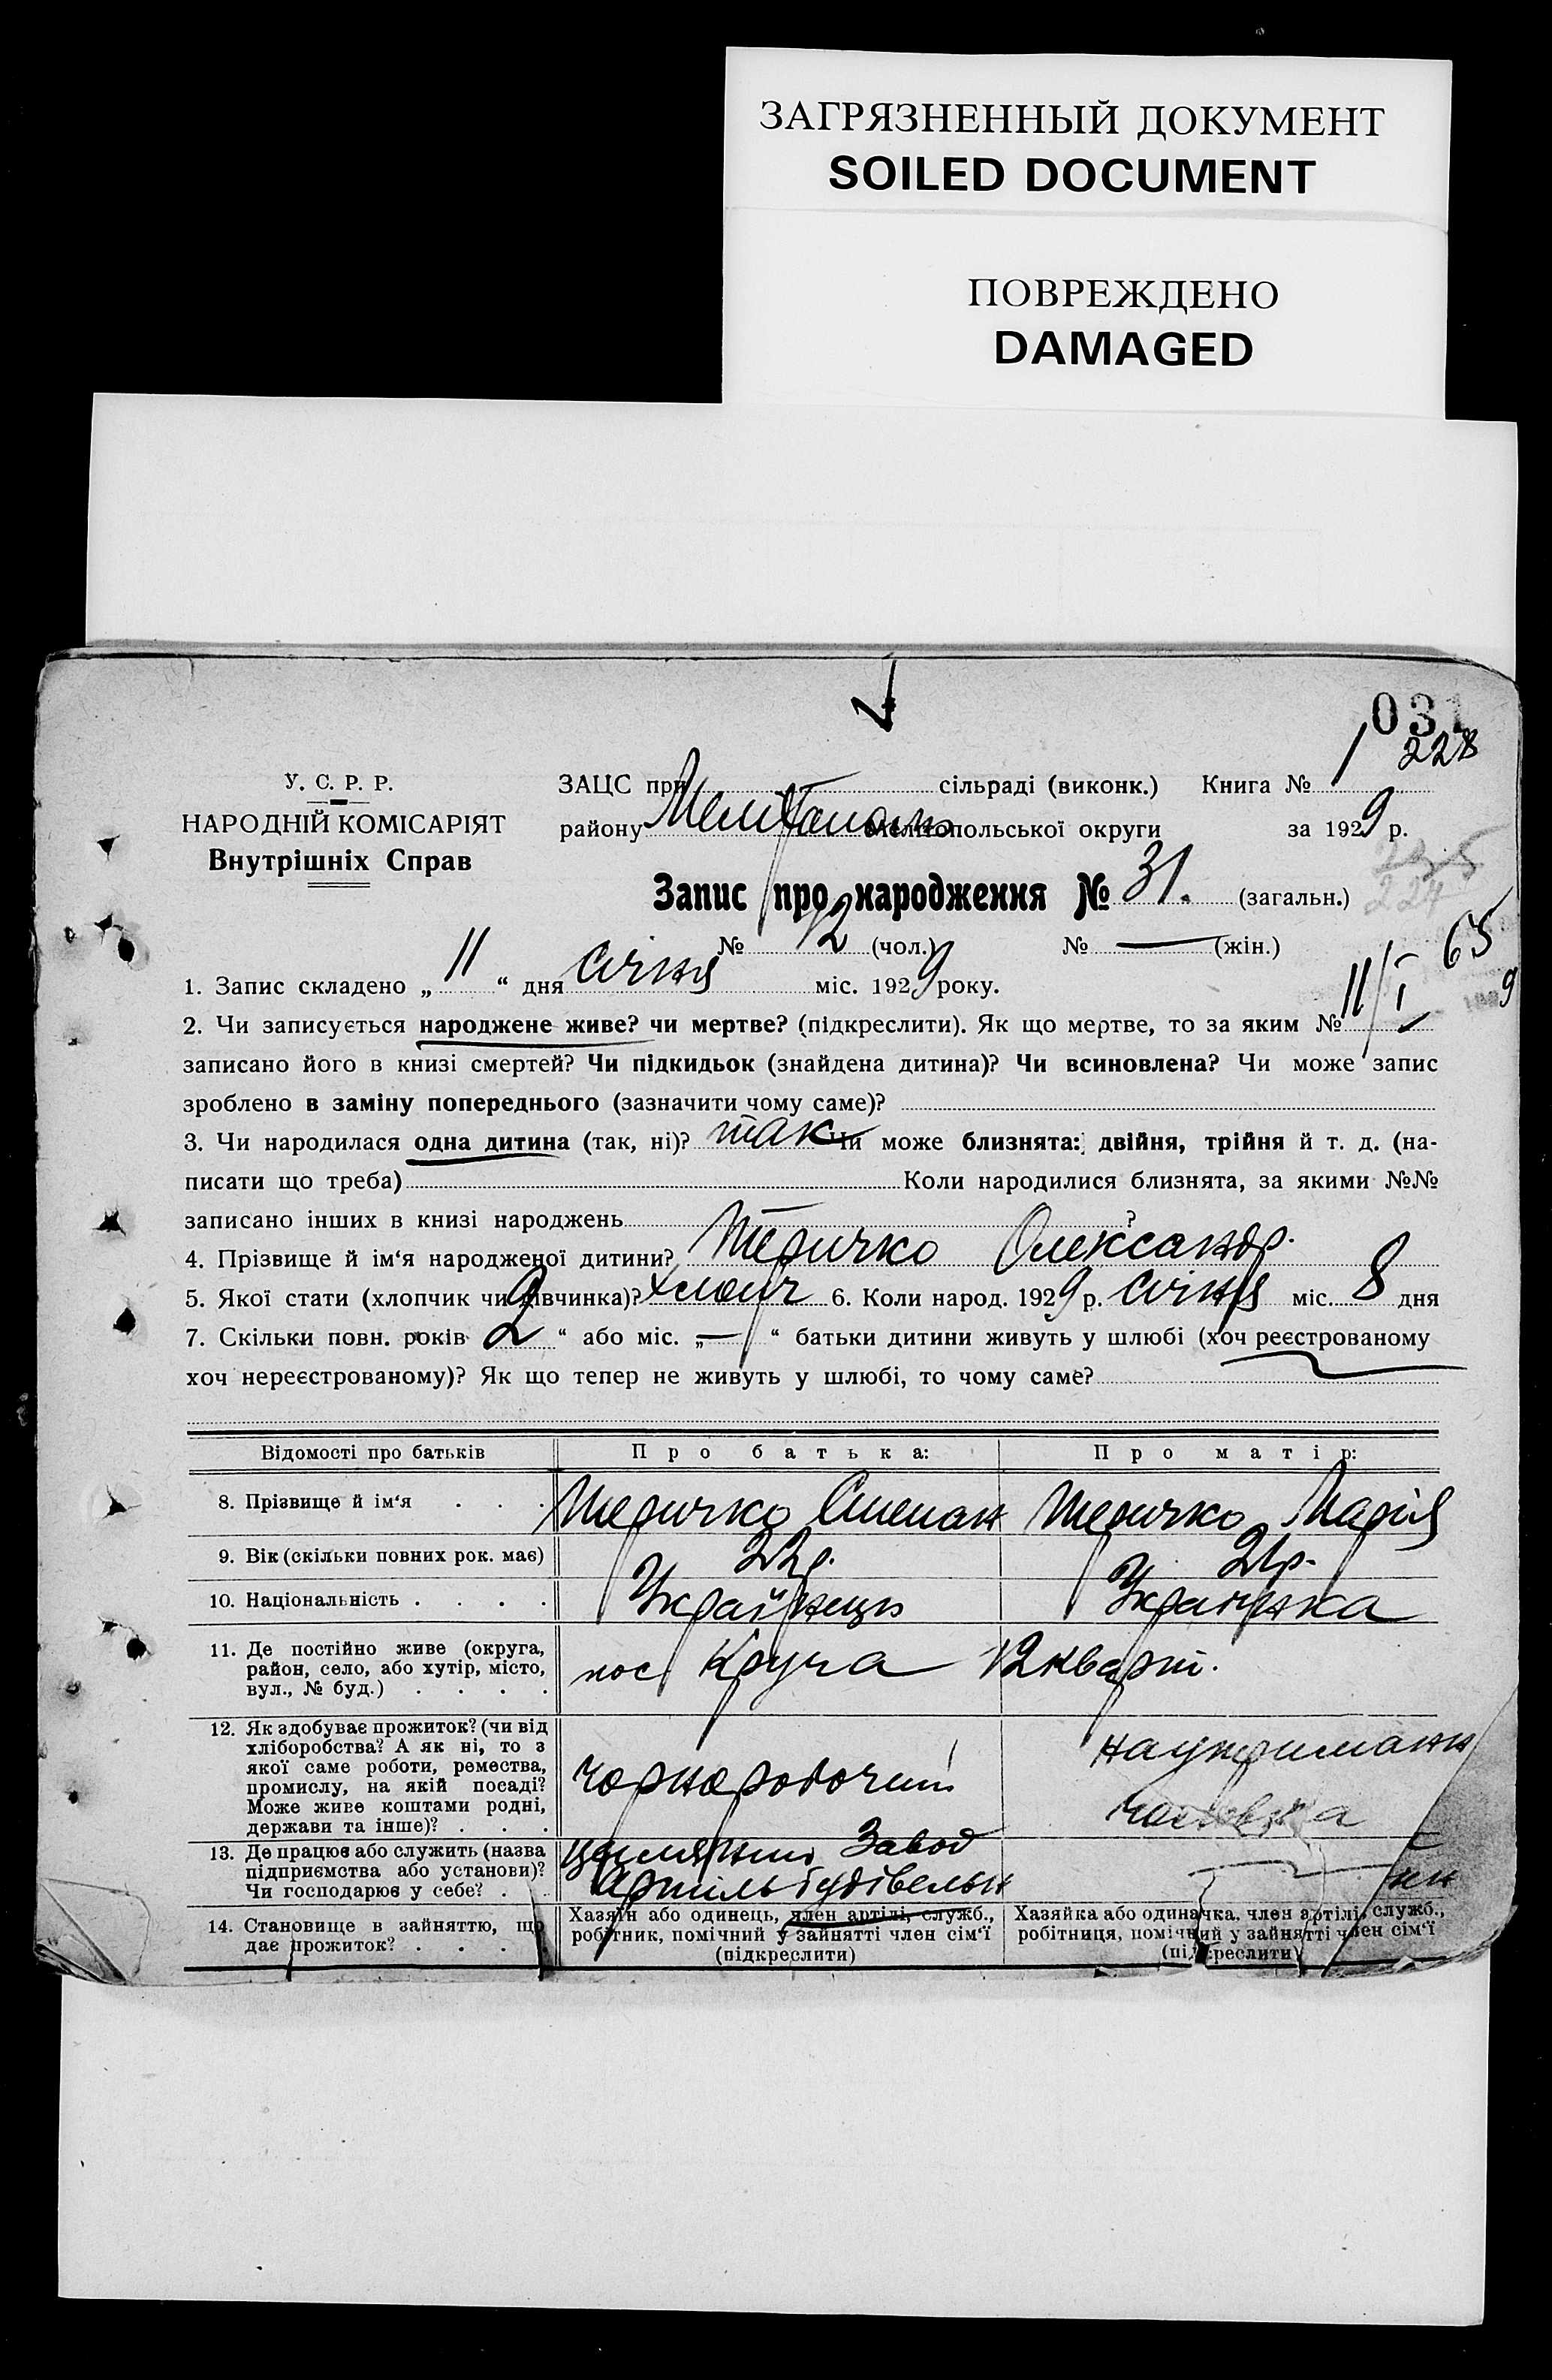 ЗАГРЯЗНЕННЫЙ ДОКУМЕНТ
SOILED DOCUMENT
ПОВРЕЖДЕНО
DAMAGED
031
228
У. С. Р. Р.
НАРОДНІЙ КОМІСАРІЯТ
Внутрішніх Справ
ЗАЦС при сільраді (виконк.) Книга № 1
району Мелітополь Мелітопольської округи за 1929 р.
Запис про народження № 31. (загальн.)
№ 12 (чол.) № — (жін.)
65
1. Запис складено „ 11 “ дня січня міс. 1929 року.
11/I
2. Чи записується народжене живе? чи мертве? (підкреслити). Як що мертве, то за яким №
записано його в книзі смертей? Чи підкидьок (знайдена дитина)? Чи всиновлена? Чи може запис
зроблено в заміну попереднього (зазначити чому саме)?
3. Чи народилася одна дитина (так, ні)? так Чи може близнята: двійня, трійня й т. д. (на-
писати що треба) Коли народилися близнята, за якими №№
записано інших в книзі народжень ?
4. Прізвище й ім‘я народженої дитини? Теричко Олександр.
5. Якої стати (хлопчик чи дівчинка)? хлопч 6. Коли народ. 1929 р. січня міс. 8 дня
7. Скільки повн. років 2 “ або міс. „ — “ батьки дитини живуть у шлюбі (хоч реєстрованому
хоч нереєстрованому)? Як що тепер не живуть у шлюбі, то чому саме?
Відомості про батьків Про батька: Про матір:
8. Прізвище й ім‘я . . . Теричко Степан Теричко Марія
9. Вік (скільки повних рок. має) 22р. 21р.
10. Національність . . . . Українець Українка
11. Де постійно живе (округа,
район, село, або хутір, місто,
вул., № буд.) . . . .
пос Круча 12 кварт.
12. Як здобуває прожиток? (чи від
хліборобства? А як ні, то з
якої саме роботи, ремества,
промислу, на якій посаді?
Може живе коштами родні,
держави та інше)? . . .
Чорноробочий
на утриманн
чоловіка
13. Де працює або служить (назва
підприємства або установи)?
Чи господарює у себе? . .
Завод
Артіль будівельн
14. Становище в зайняттю, що
дає прожиток? . . . .
Хазяїн або одинець, член артілі, служб.,
робітник, помічний у зайнятті член сім‘ї
(підкреслити)
Хазяйка або одиначка, член артілі, служб.,
робітниця, помічний у зайнятті член сім‘ї
(підкреслити)